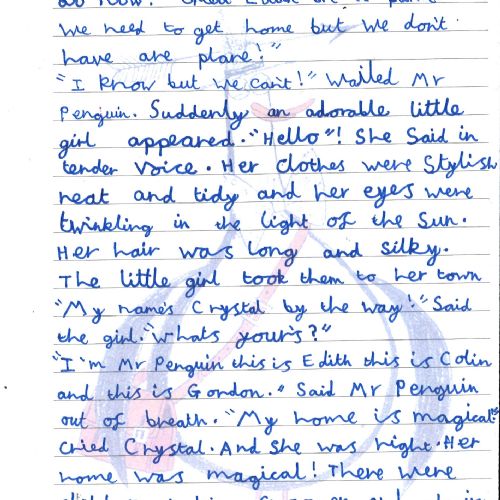 We need to get home but we don't
have are plane!"
"I know but we can't!" Wailed Mr
Penguin. Suddenly an adorable little
girl appeared. "Hello"! She said in
tender voice. Her clothes were stylish
neat and tidy and her eyes were
twinkling in the light of the sun.
Her hair was long and silky.
The little girl took them to her town
"My name's Crystal by the way!" Said
the girl. "Whats yours?"
"I'm Mr Penguin this is Edith this is Colin
and this is Gordon." Said Mr Penguin
out of breath. "My home is magical"
cried Crystal. And she was right. Her
home was magical! There were